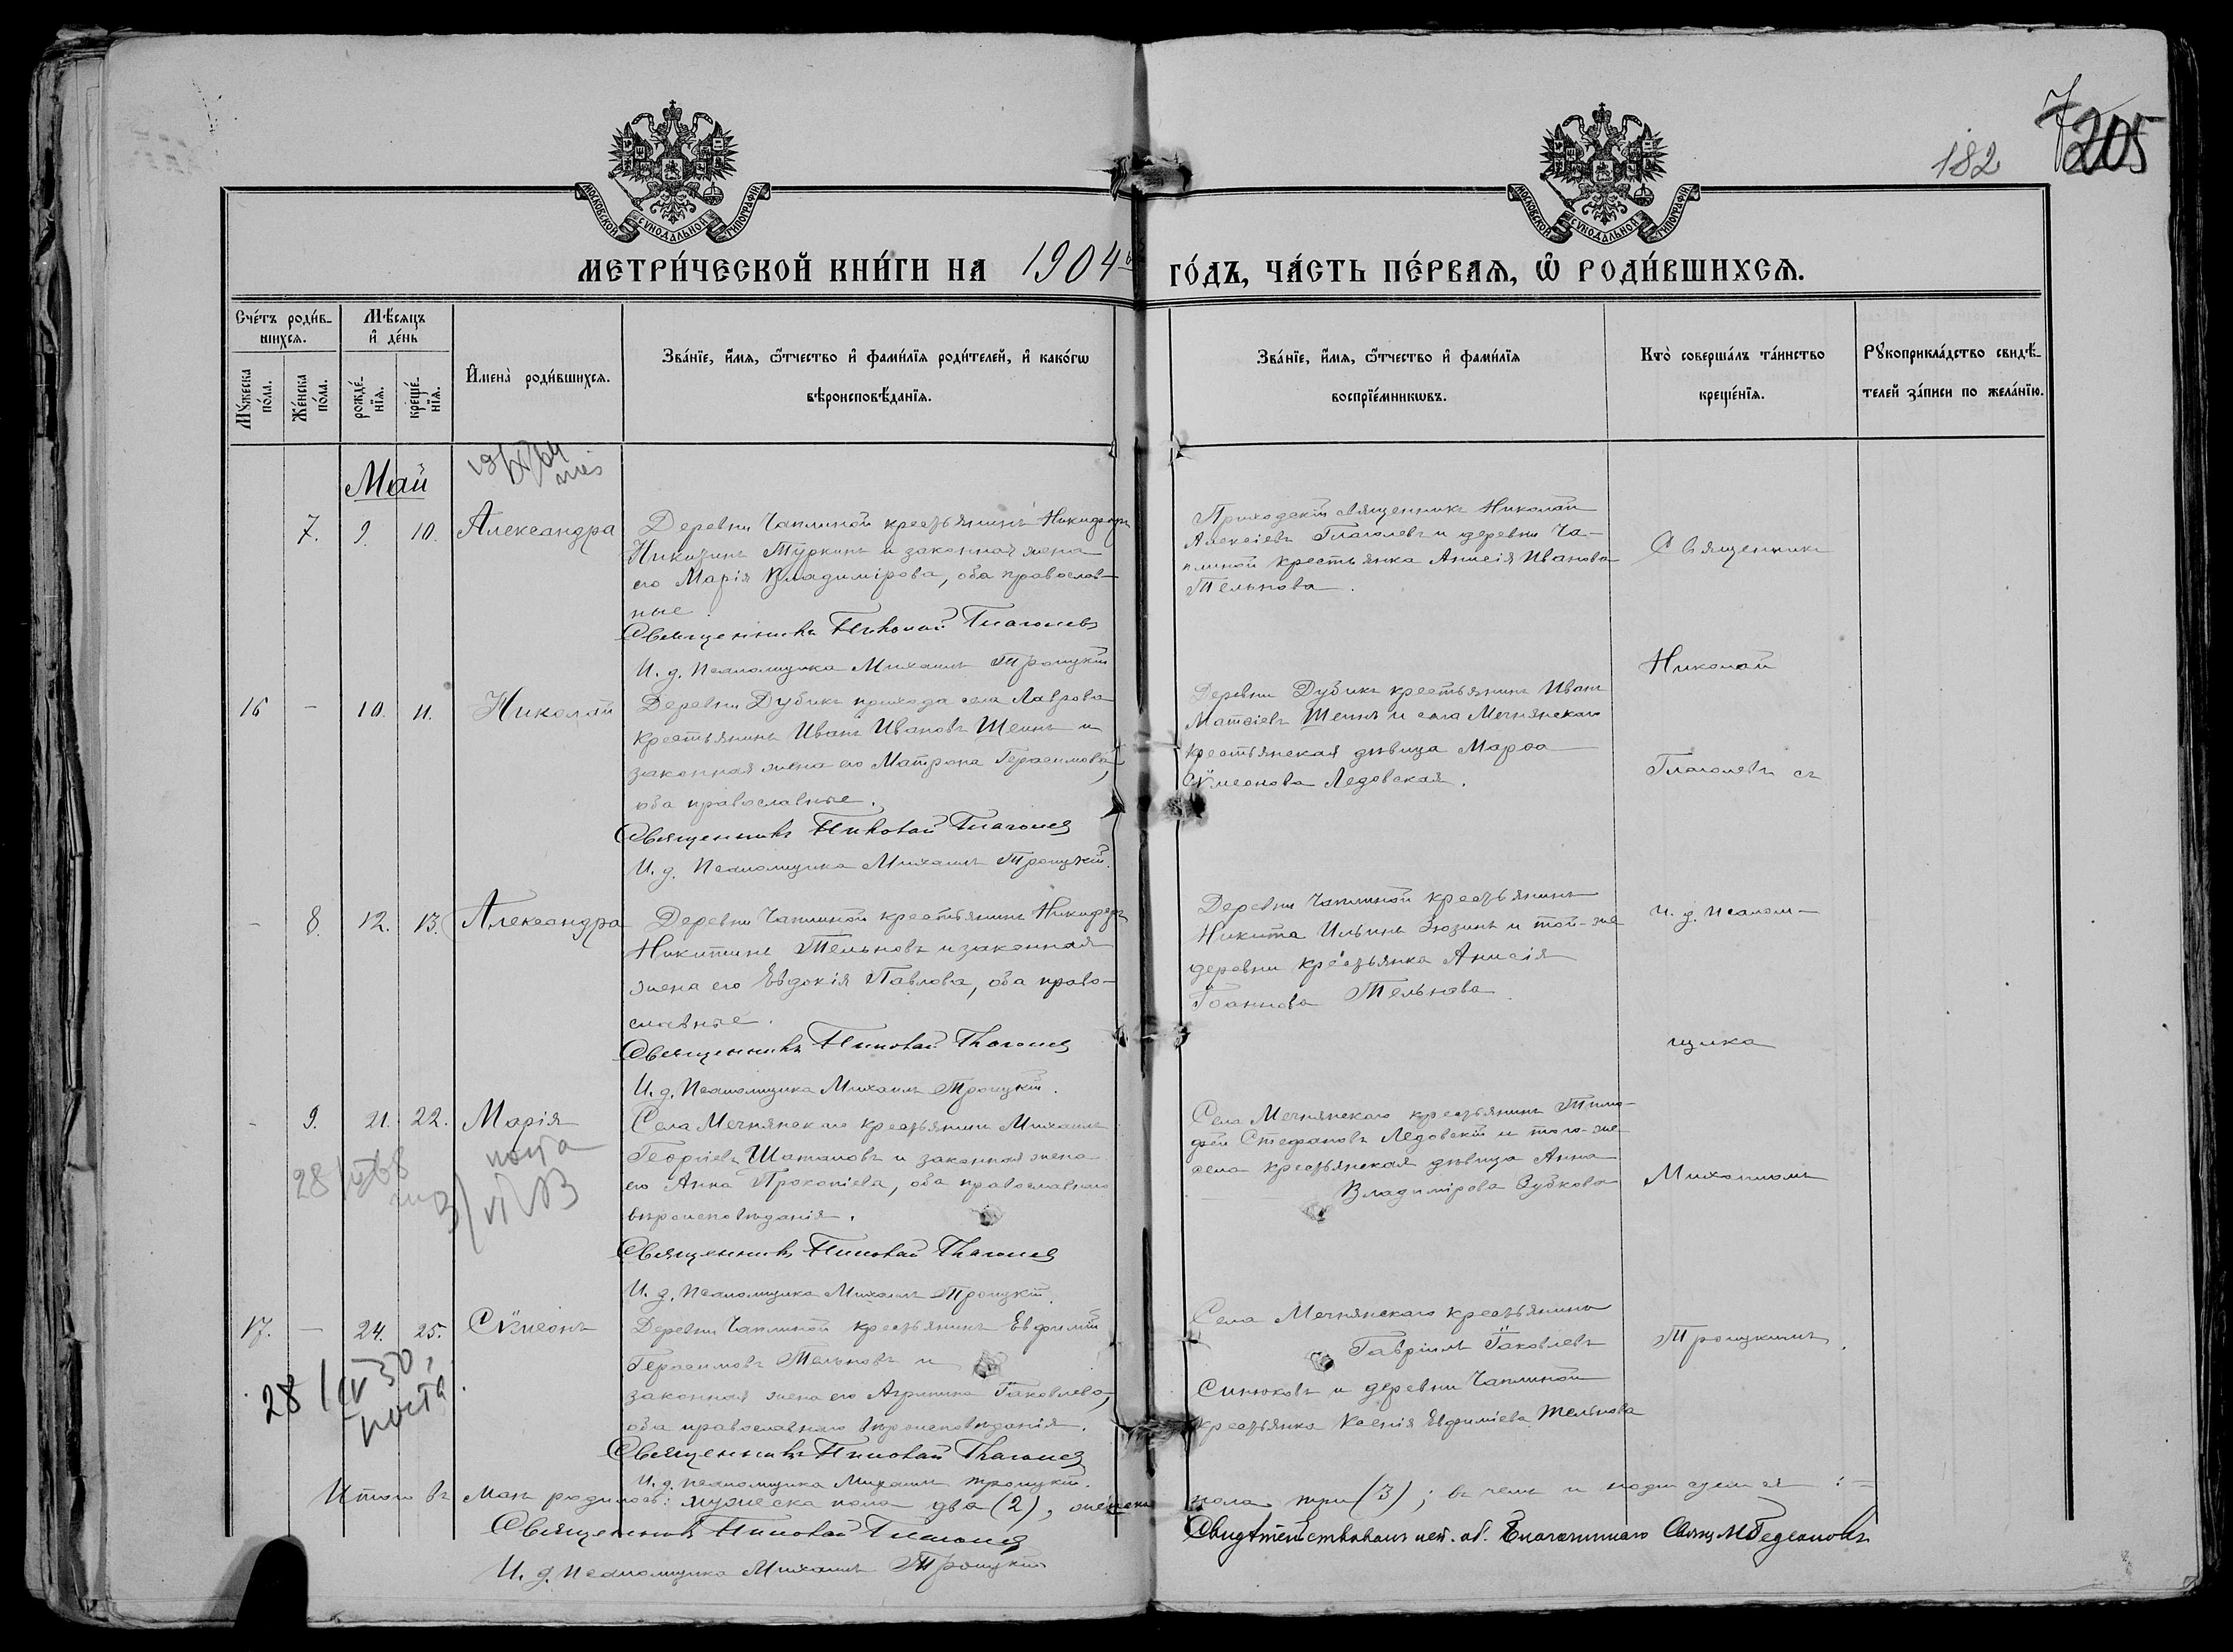 182
7205
МОСКОВСКОЙ СѴНОДАЛЬНОЙ ТИПОГРАФІИ
МОСКОВСКОЙ СѴНОДАЛЬНОЙ ТИПОГРАФІИ
МЕТРИ́ЧЕСКОЙ КНИ́ГИ НА 1904 ГО́ДЪ, ЧА́СТЬ ПЕ́РВАѦ, Ѡ҆ РОДИ́ВШИХСѦ.
Сче́тъ роди́в-
шихсѧ.
Мꙋ́жеска по́ла.
Же́нска по́ла.
Мѣ́сѧцъ
и҆ де́нь
рожде́-
нїѧ.
креще́-
нїѧ.
И҆мена̀ роди́вшихсѧ.
Зва́нїе, и҆́мѧ, ѻ҆́тчество и҆ фами́лїѧ роди́телей, и҆ како́гѡ
вѣроисповѣ́данїѧ.
Зва́нїе, и҆́мѧ, ѻ҆́тчество и҆ фами́лїѧ
воспрїе́мникѡвъ.
Кто̀ соверша́лъ та́инство
креще́нїѧ.
Рꙋкоприкла́дство свидѣ́-
телей за́писи по жела́нїю.
Май
7. 9. 10. Александра
Деревни Чаплиной крестьянинъ Никифоръ
Туркинъ и законная жена
его Марія Владимірова, оба православ-
ные.
Священникъ Николай Глаголевъ
И. д. Псаломщика Михаилъ Троицкій
Приходскій священникъ Николай
Алексіевъ Глаголевъ и деревни Ча-
плиной крестьянка Анисія Иванова
Тельнова.
Священникъ
Николай
Глаголевъ съ
и. д. псалом-
щика
Михаиломъ
Троицкимъ.
16 - 10. 11. Николай
Деревни Дубикъ прихода села Лаврова
крестьянинъ Иванъ Ивановъ Шеинъ и
законная жена его Матрона Герасимова,
оба православные.
Священникъ Николай Глаголевъ
И. д. Псаломщика Михаилъ Троицкій.
Деревни Дубикъ крестьянинъ Иванъ
Матѳіевъ Шеинъ и села Мечнянскаго
крестьянская дѣвица Марѳа
Сѵмеонова Ледовская.
- 8. 12. 13. Александра
Деревни Чаплиной крестьянинъ Никифоръ
Никитинъ Тельновъ и законная
жена его Евдокія Павлова, оба право-
славные.
Священникъ Николай Глаголевъ
И. д. Псаломщика Михаилъ Троицкій.
Деревни Чаплиной крестьянинъ
Никита Ильинъ Зюзинъ и той-же
деревни крестьянка Анисія
Іоаннова Тельнова.
- 9. 21. 22. Марія
Села Мечнянскаго крестьянинъ Михаилъ
Георгіевъ Шаталовъ и законная жена
его Анна Прокопіева, оба православнаго
вѣроисповѣданія.
Священникъ Николай Глаголевъ
И. д. Псаломщика Михаилъ Троицкій.
Села Мечнянскаго крестьянинъ Тимо-
фей Стефановъ Ледовскій и того-же
села крестьянская дѣвица Анна
Владимірова Зубкова
17. - 24. 25. Сѵмеонъ
Деревни Чаплиной крестьянинъ Евфимій
Герасимовъ Тельновъ и
законная жена его Агрипина Іаковлева,
оба православнаго вѣроисповѣданія.
Священникъ Николай Глаголевъ
И. д. псаломщика Михаилъ Троицкій.
Села Мечнянскаго крестьянинъ
Гавріилъ Іаковлевъ
Синюковъ и деревни Чаплиной
крестьянка Ксенія Евфиміева Тельнова
Итого въ Маѣ родилось: мужеска пола два (2), женска пола три (3); въ чемъ и подписуемся:=
Священникъ Николай Глаголевъ
И. д. псаломщика Михаилъ Троицкій